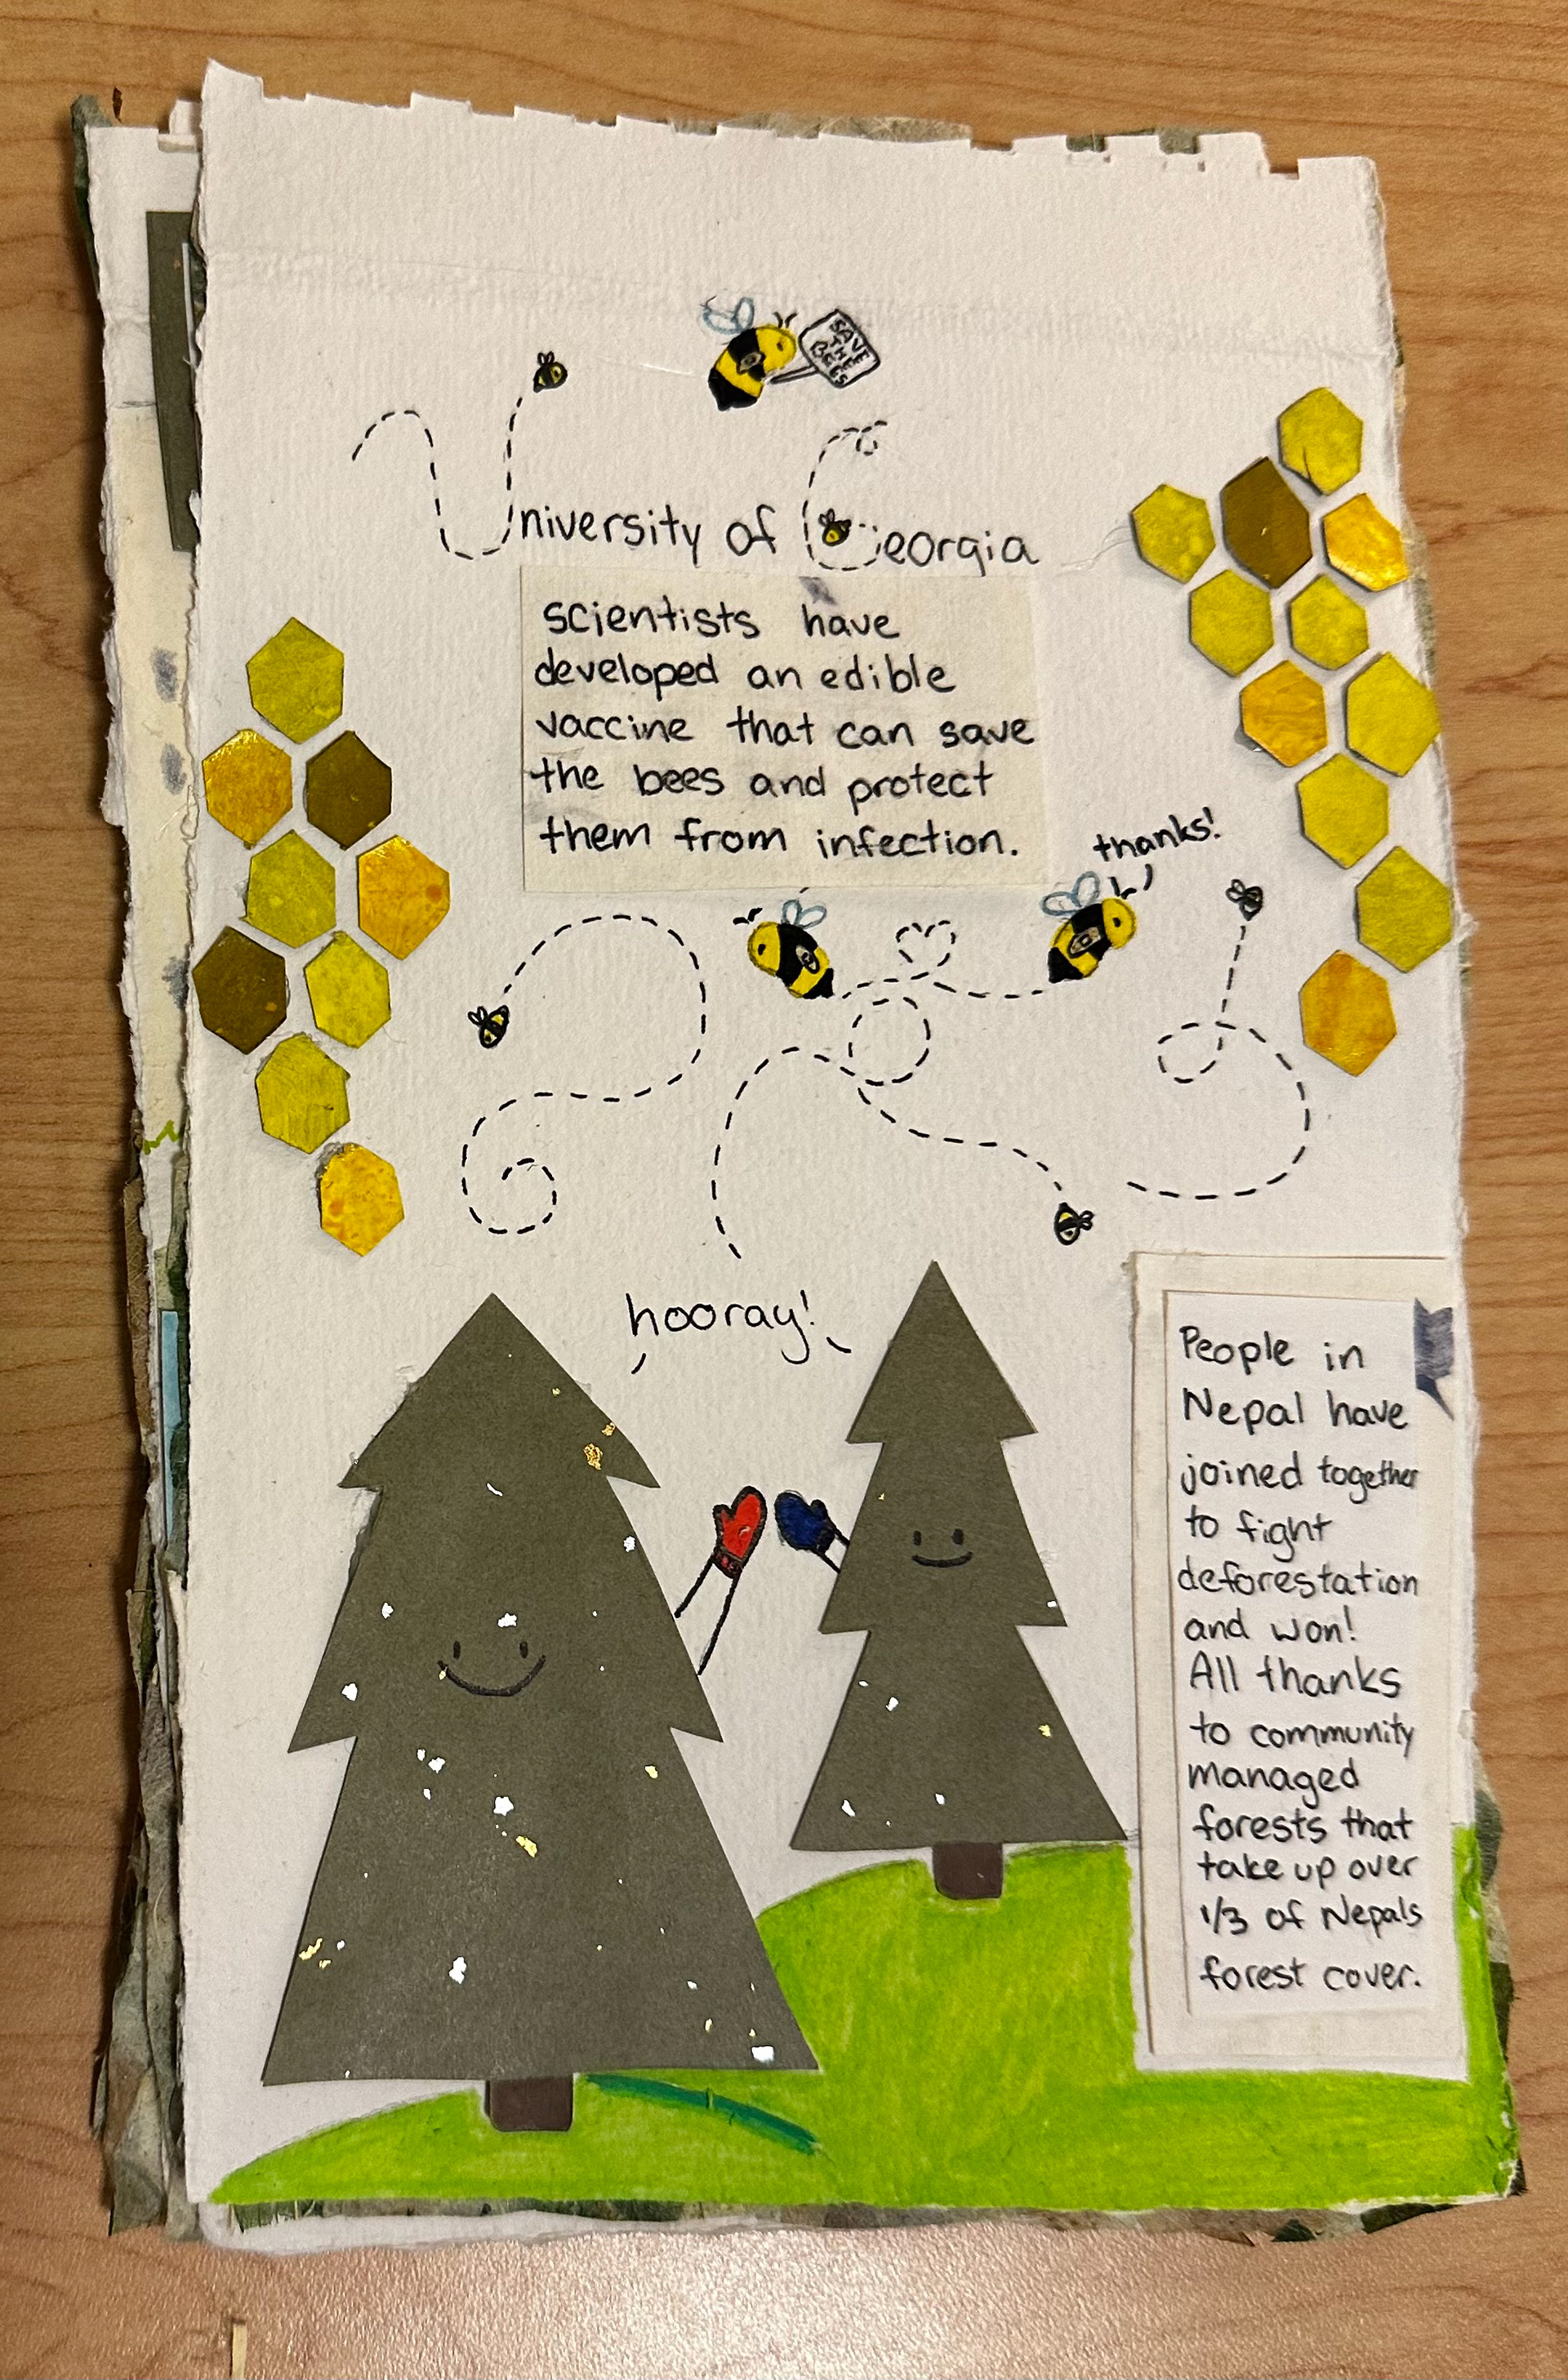 SAVE
THE
BEES
University of Georgia
scientists have
developed an edible
vaccine that can save
the bees and protect
them from infection.
thanks!
hooray!
People in
Nepal have
joined together
to fight
deforestation
and won!
All thanks
to community
managed
forests that
take up over
1/3 of Nepals
forest cover.